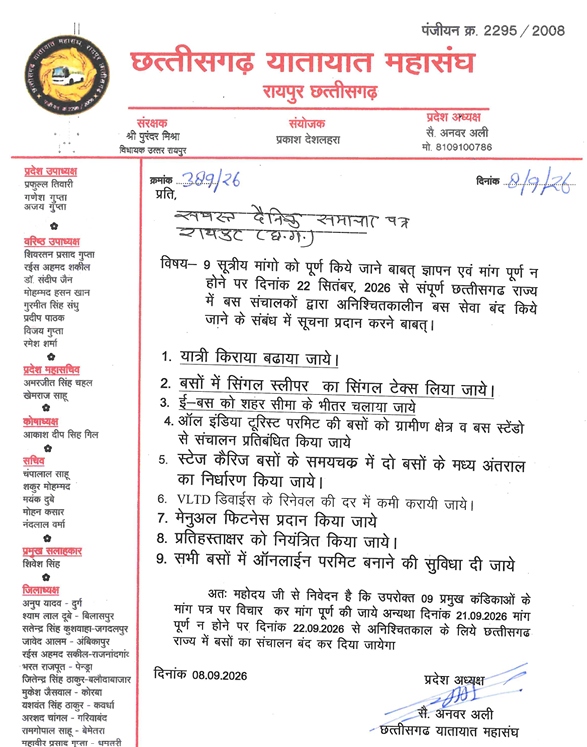 पंजीयन क्र. 2295 / 2008
छत्तीसगढ़ यातायात महासंघ
रायपुर छत्तीसगढ़
संरक्षक
श्री पुरंदर मिश्रा
विधायक उत्तर रायपुर
संयोजक
प्रकाश देशलहरा
प्रदेश अध्यक्ष
सै. अनवर अली
मो. 8109100786
प्रदेश उपाध्यक्ष
प्रफुल्ल तिवारी
गणेश गुप्ता
अजय गुप्ता
वरिष्ठ उपाध्यक्ष
शिवरतन प्रसाद गुप्ता
रईस अहमद शकील
डॉ. संदीप जैन
मोहम्मद हसन खान
गुरमीत सिंह संधु
प्रदीप पाठक
विजय गुप्ता
रमेश शर्मा
प्रदेश महासचिव
अमरजीत सिंह चहल
खेमराज साहू
कोषाध्यक्ष
आकाश दीप सिंह गिल
सचिव
चंपालाल साहू
शकुर मोहम्मद
मयंक दुबे
मोहन कसार
नंदलाल वर्मा
प्रमुख सलाहकार
शिवेश सिंह
जिलाध्यक्ष
अनुप यादव - दुर्ग
श्याम लाल दूबे - बिलासपुर
सतेन्द्र सिंह कुशवाहा-जगदलपुर
जावेद आलम - अंबिकापुर
रईस अहमद सकील-राजनांदगांव
भरत राजपूत - पेन्ड्रा
जितेन्द्र सिंह ठाकुर-बलौदाबाजार
मुकेश जैसवाल - कोरबा
यशवंत सिंह ठाकुर - कवर्धा
अरशद चांगल - गरियाबंद
रामगोपाल साहू - बेमेतरा
महावीर प्रसाद गुप्ता - धमतरी
क्रमांक 389/26
दिनांक 8/9/26
प्रति,
समस्त दैनिक समाचार पत्र
रायपुर (छ.ग.)
विषय– 9 सूत्रीय मांगो को पूर्ण किये जाने बाबत् ज्ञापन एवं मांग पूर्ण न
होने पर दिनांक 22 सितंबर, 2026 से संपूर्ण छत्तीसगढ राज्य
में बस संचालकों द्वारा अनिश्चितकालीन बस सेवा बंद किये
जाने के संबंध में सूचना प्रदान करने बाबत्।
1. यात्री किराया बढाया जाये।
2. बसों में सिंगल स्लीपर का सिंगल टेक्स लिया जाये।
3. ई–बस को शहर सीमा के भीतर चलाया जाये
4. ऑल इंडिया टूरिस्ट परमिट की बसों को ग्रामीण क्षेत्र व बस स्टेंडो
से संचालन प्रतिबंधित किया जाये
5. स्टेज कैरिज बसों के समयचक्र में दो बसों के मध्य अंतराल
का निर्धारण किया जाये।
6. VLTD डिवाईस के रिनेवल की दर में कमी करायी जाये।
7. मेनुअल फिटनेस प्रदान किया जाये
8. प्रतिहस्ताक्षर को नियंत्रित किया जाये।
9. सभी बसों में ऑनलाईन परमिट बनाने की सुविधा दी जाये
अतः महोदय जी से निवेदन है कि उपरोक्त 09 प्रमुख कंडिकाओं के
मांग पत्र पर विचार कर मांग पूर्ण की जाये अन्यथा दिनांक 21.09.2026 मांग
पूर्ण न होने पर दिनांक 22.09.2026 से अनिश्चितकाल के लिये छत्तीसगढ
राज्य में बसों का संचालन बंद कर दिया जायेगा
दिनांक 08.09.2026
प्रदेश अध्यक्ष
सै. अनवर अली
छत्तीसगढ़ यातायात महासंघ